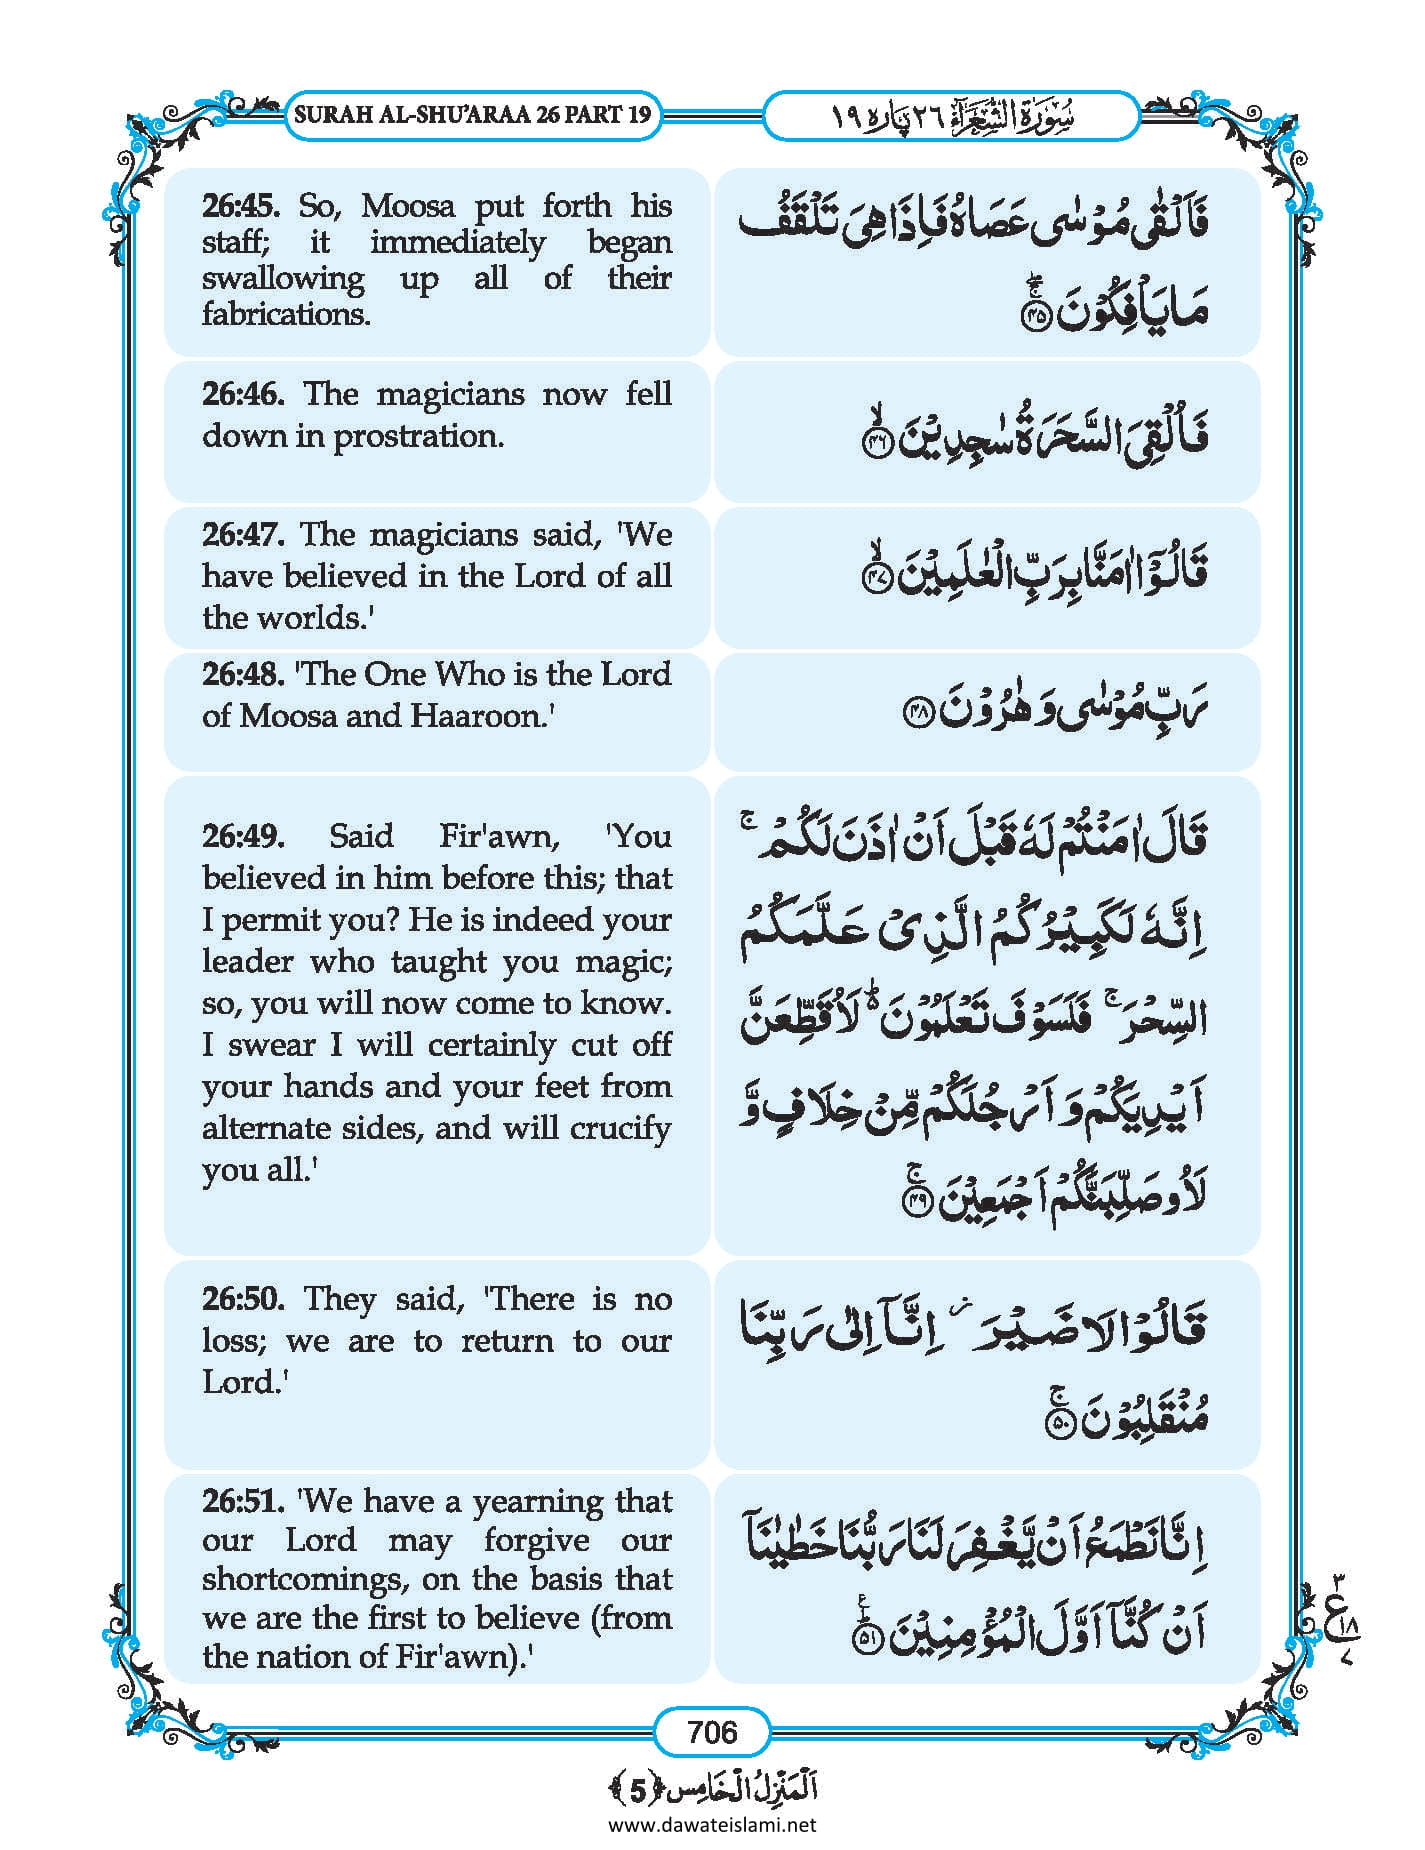 SURAH AL-SHU'ARAA 26 PART 19
سُوۡرَۃُ الشُّعَرَآءِ ٢٦ پاره ١٩
26:45. So, Moosa put forth his
staff; it immediately began
swallowing up all of their
fabrications.
فَاَلۡقٰی مُوۡسٰی عَصَاہُ فَاِذَا ہِیَ تَلۡقَفُ
مَا یَاۡفِکُوۡنَ ﴿ۚۖ۴۵﴾
26:46. The magicians now fell
down in prostration.
فَاُلۡقِیَ السَّحَرَۃُ سٰجِدِیۡنَ ﴿ۙ۴۶﴾
26:47. The magicians said, 'We
have believed in the Lord of all
the worlds.'
قَالُوۡۤا اٰمَنَّا بِرَبِّ الۡعٰلَمِیۡنَ ﴿ۙ۴۷﴾
26:48. 'The One Who is the Lord
of Moosa and Haaroon.'
رَبِّ مُوۡسٰی وَ ہٰرُوۡنَ ﴿۴۸﴾
26:49. Said Fir'awn, 'You
believed in him before this; that
I permit you? He is indeed your
leader who taught you magic;
so, you will now come to know.
I swear I will certainly cut off
your hands and your feet from
alternate sides, and will crucify
you all.'
قَالَ اٰمَنۡتُمۡ لَہٗ قَبۡلَ اَنۡ اٰذَنَ لَکُمۡ ۚ
اِنَّہٗ لَکَبِیۡرُکُمُ الَّذِیۡ عَلَّمَکُمُ
السِّحۡرَ ۚ فَلَسَوۡفَ تَعۡلَمُوۡنَ ۬ؕ لَاُقَطِّعَنَّ
اَیۡدِیَکُمۡ وَ اَرۡجُلَکُمۡ مِّنۡ خِلَافٍ وَّ
لَاُوصَلِّبَنَّکُمۡ اَجۡمَعِیۡنَ ﴿ۚ۴۹﴾
26:50. They said, 'There is no
loss; we are to return to our
Lord.'
قَالُوۡا لَا ضَیۡرَ ۫ اِنَّاۤ اِلٰی رَبِّنَا
مُنۡقَلِبُوۡنَ ﴿ۚ۵۰﴾
26:51. 'We have a yearning that
our Lord may forgive our
shortcomings, on the basis that
we are the first to believe (from
the nation of Fir'awn).'
اِنَّا نَطۡمَعُ اَنۡ یَّغۡفِرَ لَنَا رَبُّنَا خَطٰیٰنَاۤ
اَنۡ کُنَّاۤ اَوَّلَ الۡمُؤۡمِنِیۡنَ ﴿ؕ٪۵۱﴾
۳
ع ۱۸
۷
706
اَلۡمَنۡزِلُ الۡخَامِس ﴿5﴾
www.dawateislami.net